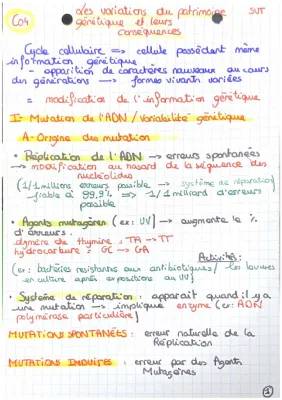 C04
Les variations du patrimoine SVT
génétique et leurs
conséquences
Cycle cellulaire => cellule possédant même
information génétique
- apparition de caractères nouveaux au cours
des générations → formes vivants variées
= modification de l'information génétique
I- Mutation de l'ADN / Variabilité génétique
A- Origine des mutation
• Réplication de l'ADN → erreurs spontanées
→ modification au hasard de la séquence des
nucléotides
(1/1 millions erreurs possible → système de réparation)
fiable à 99,9% => 1/1 milliard d'erreurs
possible
• Agents mutagènes (ex: UV) → augmente le %
d'erreurs.
dymère de thymine: TA → TT
hydrocarbure: GC → GA
Activités:
(ex: bactéries resistantes aux antibiotiques / les levures
en culture après expositions au UV)
• Système de réparation: apparait quand il y a
une mutation → implique enzyme (ex: ADN
polymérase particulière)
MUTATIONS SPONTANÉES: erreur naturelle de la
Réplication
MUTATIONS INDUITES: erreur par des Agents
Mutagènes
1